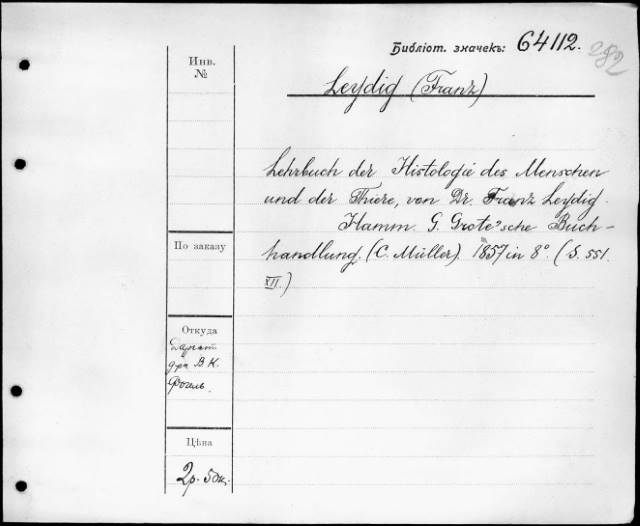 Библіот. значекъ: 64112. 282
Инв.
№
Leydig (Franz)
Lehrbuch der Histologie des Menschen
und der Thiere, von Dr. Franz Leydig.
Hamm. G. Grote'sche Buch-
handlung. (C. Müller). 1857 in 8° (S. 551.
XII.)
По заказу
Откуда
д-ра В. К.
Фогель.
Цѣна
2р. 50к.